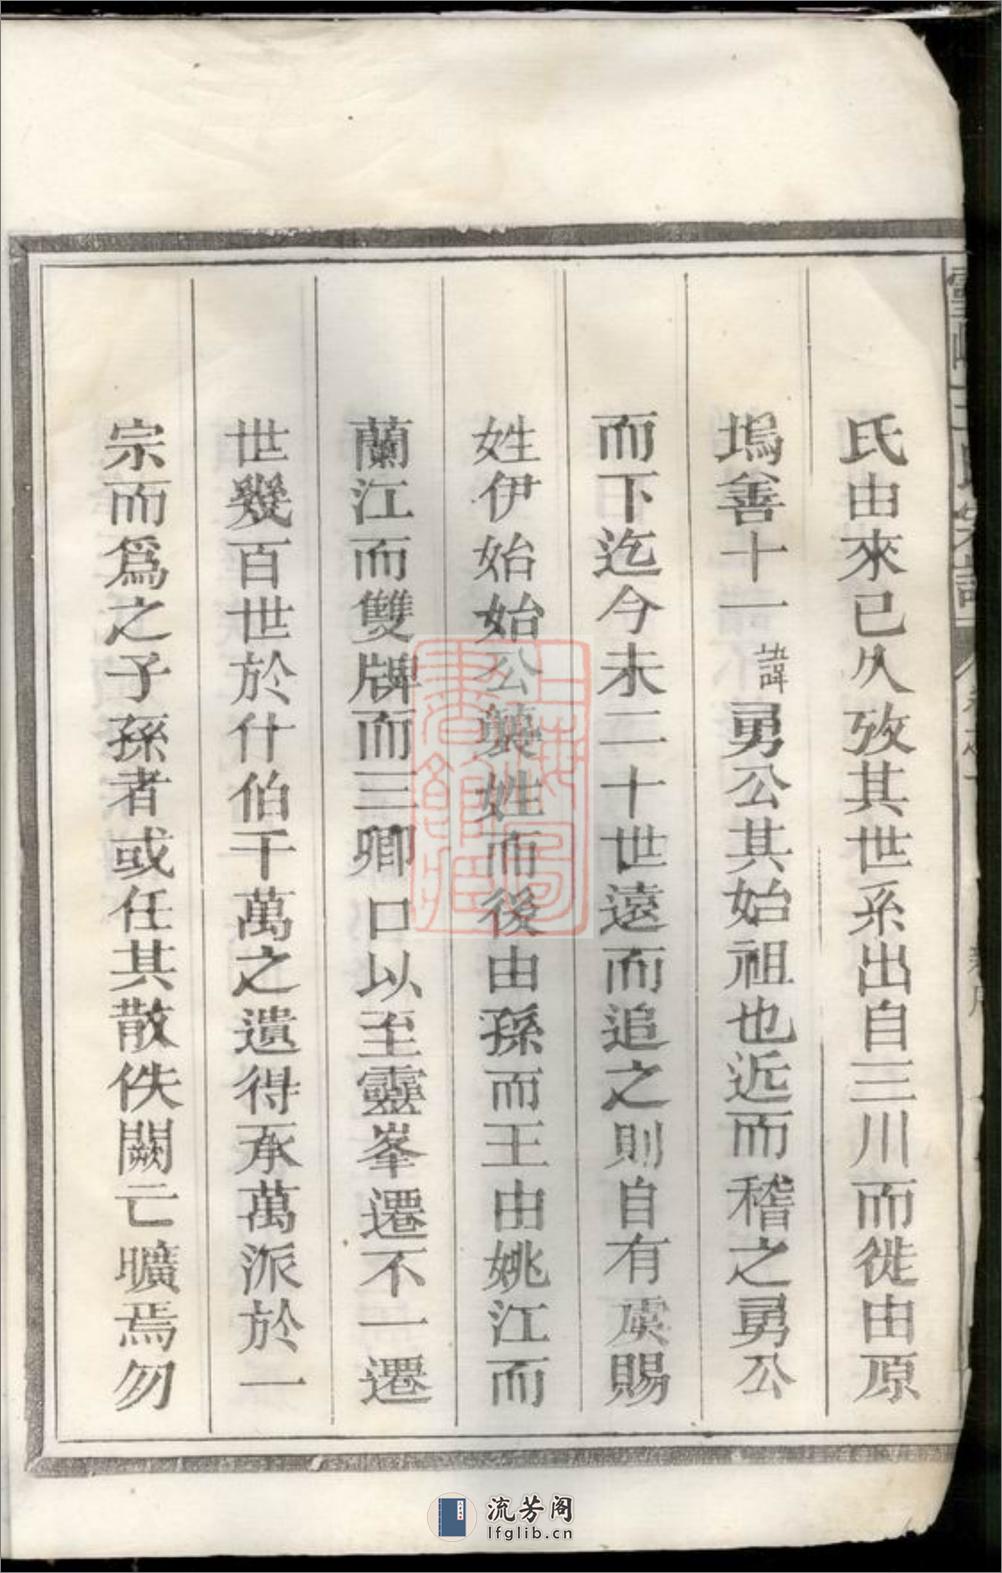 氏由來已久攷其世系出自三川而徙由原
塢善十一諱勇公其始祖也近而稽之勇公
而下迄今未二十世遠而追之則自有虞賜
姓伊始始公襲姓而後由孫而王由姚江而
蘭江而雙牌而三卿口以至靈峯遷不一遷
世幾百世於什伯千萬之遺得承萬派於一
宗而爲之子孫者或任其散佚闕亡曠焉勿
流芳阁
lfglib.cn